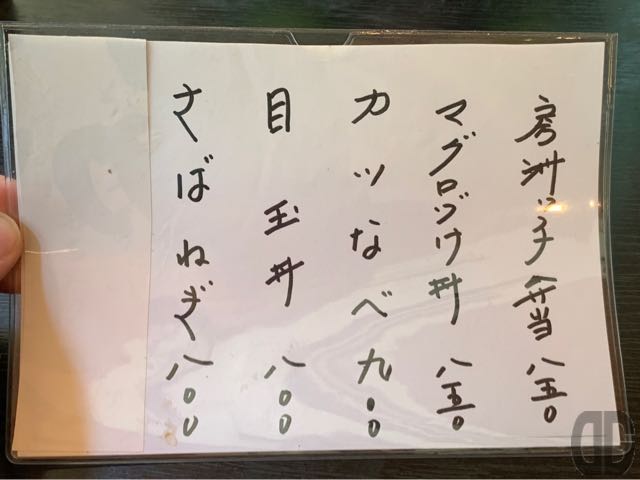 房洲ッ子弁当 八五〇
マグロヅケ丼 八五〇
カツなべ 九〇〇
目玉丼 八〇〇
さばねぎ 八〇〇